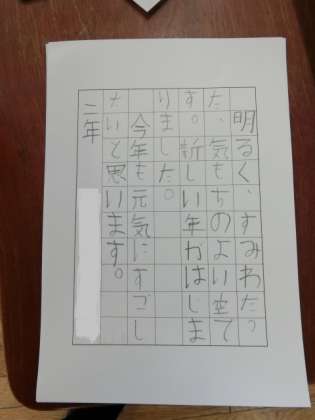 明るく、すみわたっ
た、気もちのよい空で
す。新しい年がはじま
りました。
今年も元気にすごし
たいと思います。
二年